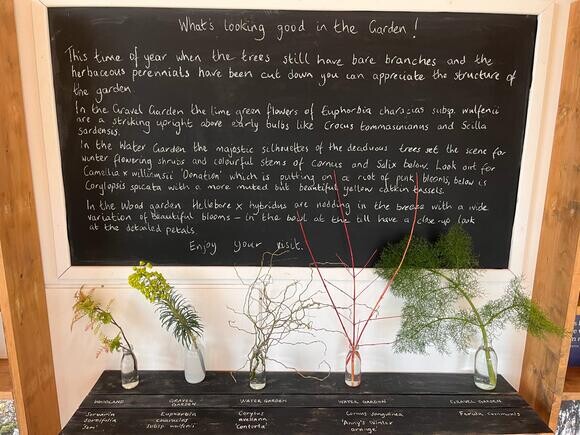 What's looking good in the Garden!
This time of year when the trees still have bare branches and the
herbaceous perennials have been cut down you can appreciate the structure of
the garden.
In the Gravel Garden the lime green flowers of Euphorbia characias subsp. wulfenii
are a striking upright above early bulbs like Crocus tommasinianus and Scilla
sardensis.
In the Water Garden the majestic silhouettes of the deciduous trees set the scene for
winter flowering shrubs and colourful stems of Cornus and Salix below. Look out for
Camellia x williamsii 'Donation' which is putting on a riot of pink blooms, below is
Corylopsis spicata with a more muted but beautiful yellow catkin tassels.
In the Wood garden Hellebore x hybridus are nodding in the breeze with a wide
variation of beautiful blooms - in the bowl at the till have a close-up look
at the detailed petals.
Enjoy your visit.
WOODLAND
Sorbaria
Sorbifolia
'Sem'
GRAVEL
GARDEN
Euphorbia
characias
Subsp wulfenii
WATER GARDEN
Corylus
avellana
'Contorta'
WATER GARDEN
Cornus sanguinea
'Anny's Winter
orange'
GRAVEL GARDEN
Ferula communis